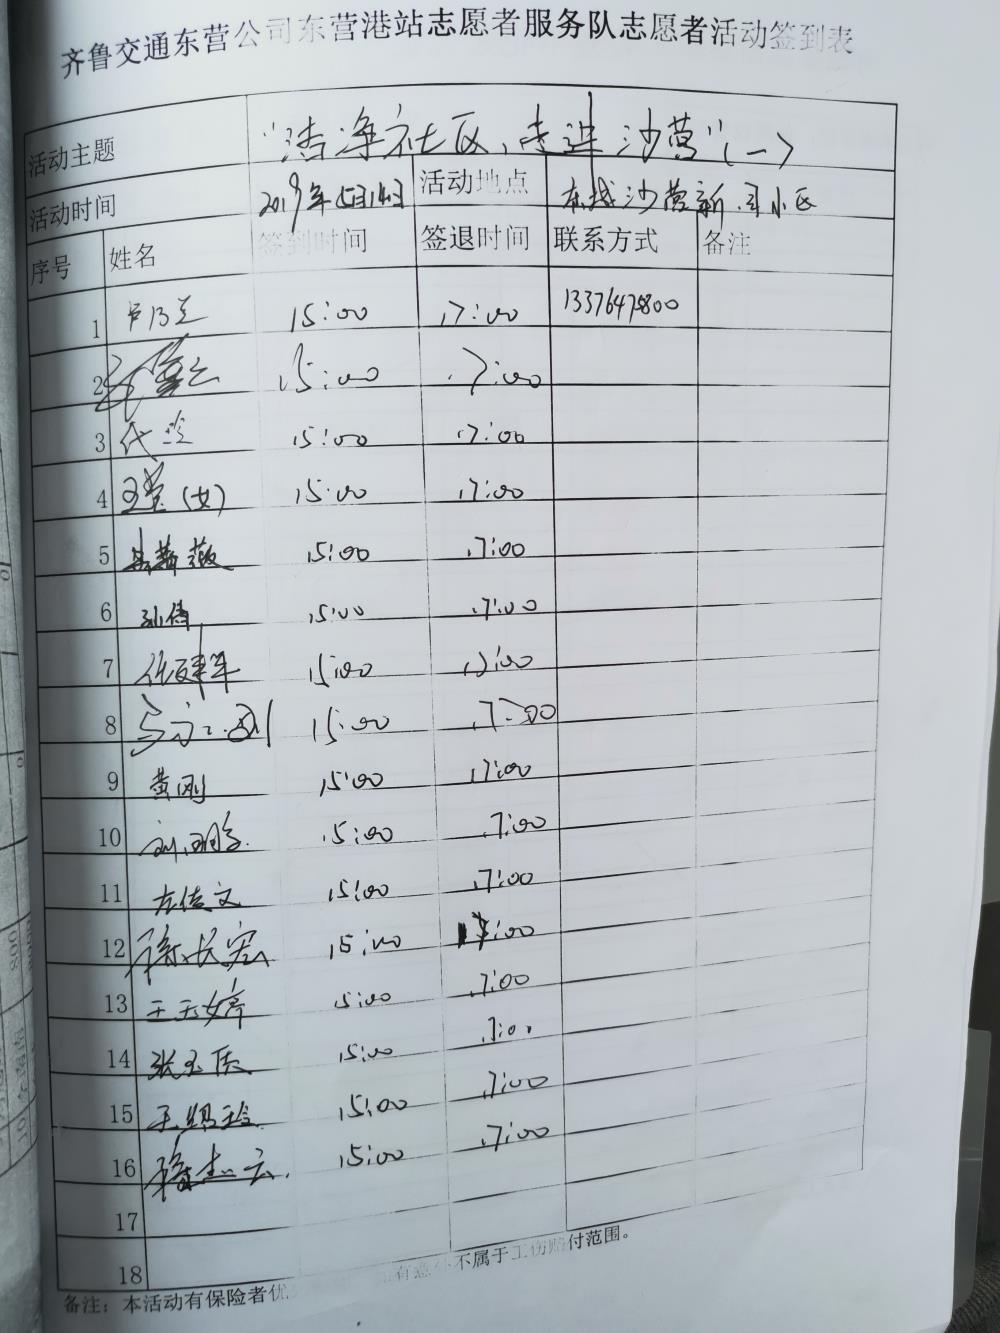 齐鲁交通东营公司东营港站志愿者服务队志愿者活动签到表
活动主题 "洁净社区,走进沙营"(一)
活动时间 2019年5月14日 活动地点 东城沙营新 小区
序号 姓名 签到时间 签退时间 联系方式 备注
1 15:00 17:00 13376478800
2 15:00 17:00
3 代玲 15:00 17:00
4 王莹(女) 15:00 17:00
5 15:00 17:00
6 孙倩 15:00 17:00
7 任建军 15:00 17:00
8 15:00 17:00
9 黄刚 15:00 17:00
10 15:00 17:00
11 左传文 15:00 17:00
12 徐长宏 15:00 17:00
13 王天婷 15:00 17:00
14 15:00 17:00
15 15:00 17:00
16 15:00 17:00
17
18
备注:本活动有保险者优 有意外不属于工伤赔付范围。